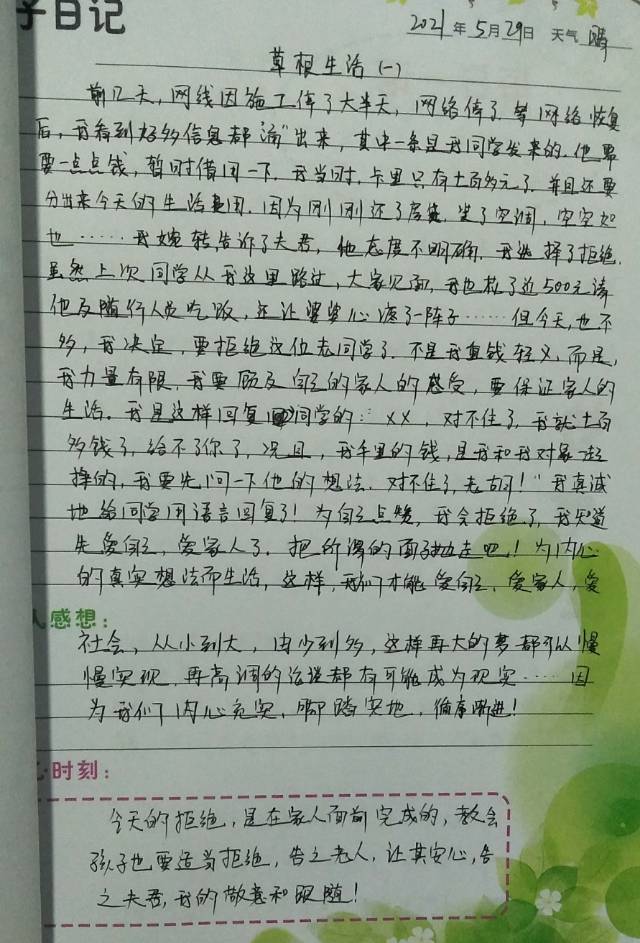 子日记
2021年5月29日 天气 晴
草根生活(一)
前几天,网线因施工停了大半天,网络停了。等网络恢复
后,我看到好多信息都“涌”出来,其中一条是我同学发来的。他要
要一点点钱,暂时借用一下。我当时,卡里只有七百多元了,并且还要
分出来今天的生活费用。因为刚刚还了房贷,装了空调,空空如
也……我婉转告诉了夫君,他态度不明确。我选择了拒绝。
虽然上次同学从我这里路过,大家见面,我也花了近500元请
他及随行人员吃饭,还让婆婆心疼了一阵子……但今天,也不
多,我决定,要拒绝这位老同学了。不是我重钱轻义,而是,
我力量有限,我要顾及自己的家人的感受,要保证家人的
生活。我是这样回复同学的:“XX,对不住了,我就七百
多钱了,给不了你了,况且,我手里的钱,是我和我对象一起
挣的,我要先问一下他的想法。对不住了,老胡!”我真诚
地给同学用语言回复了!为自己点赞,我会拒绝了,我知道
先爱自己,爱家人了。把所谓的面子抛走吧!为内心
的真实想法而生活,这样,我们才能爱自己,爱家人,爱
人感想:
社会,从小到大,由少到多,这样再大的梦都可以慢
慢实现,再高调的论谈都有可能成为现实……因
为我们内心充实,脚踏实地,循序渐进!
心时刻:
今天的拒绝,是在家人面前完成的,教会
孩子也要适当拒绝,告之老人,让其安心,告
之夫君,我的敬意和跟随!